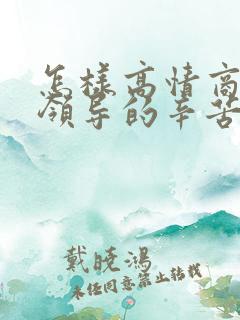 怎样高情商
领导的辛苦
戴晓鸿
未任同意禁止转载